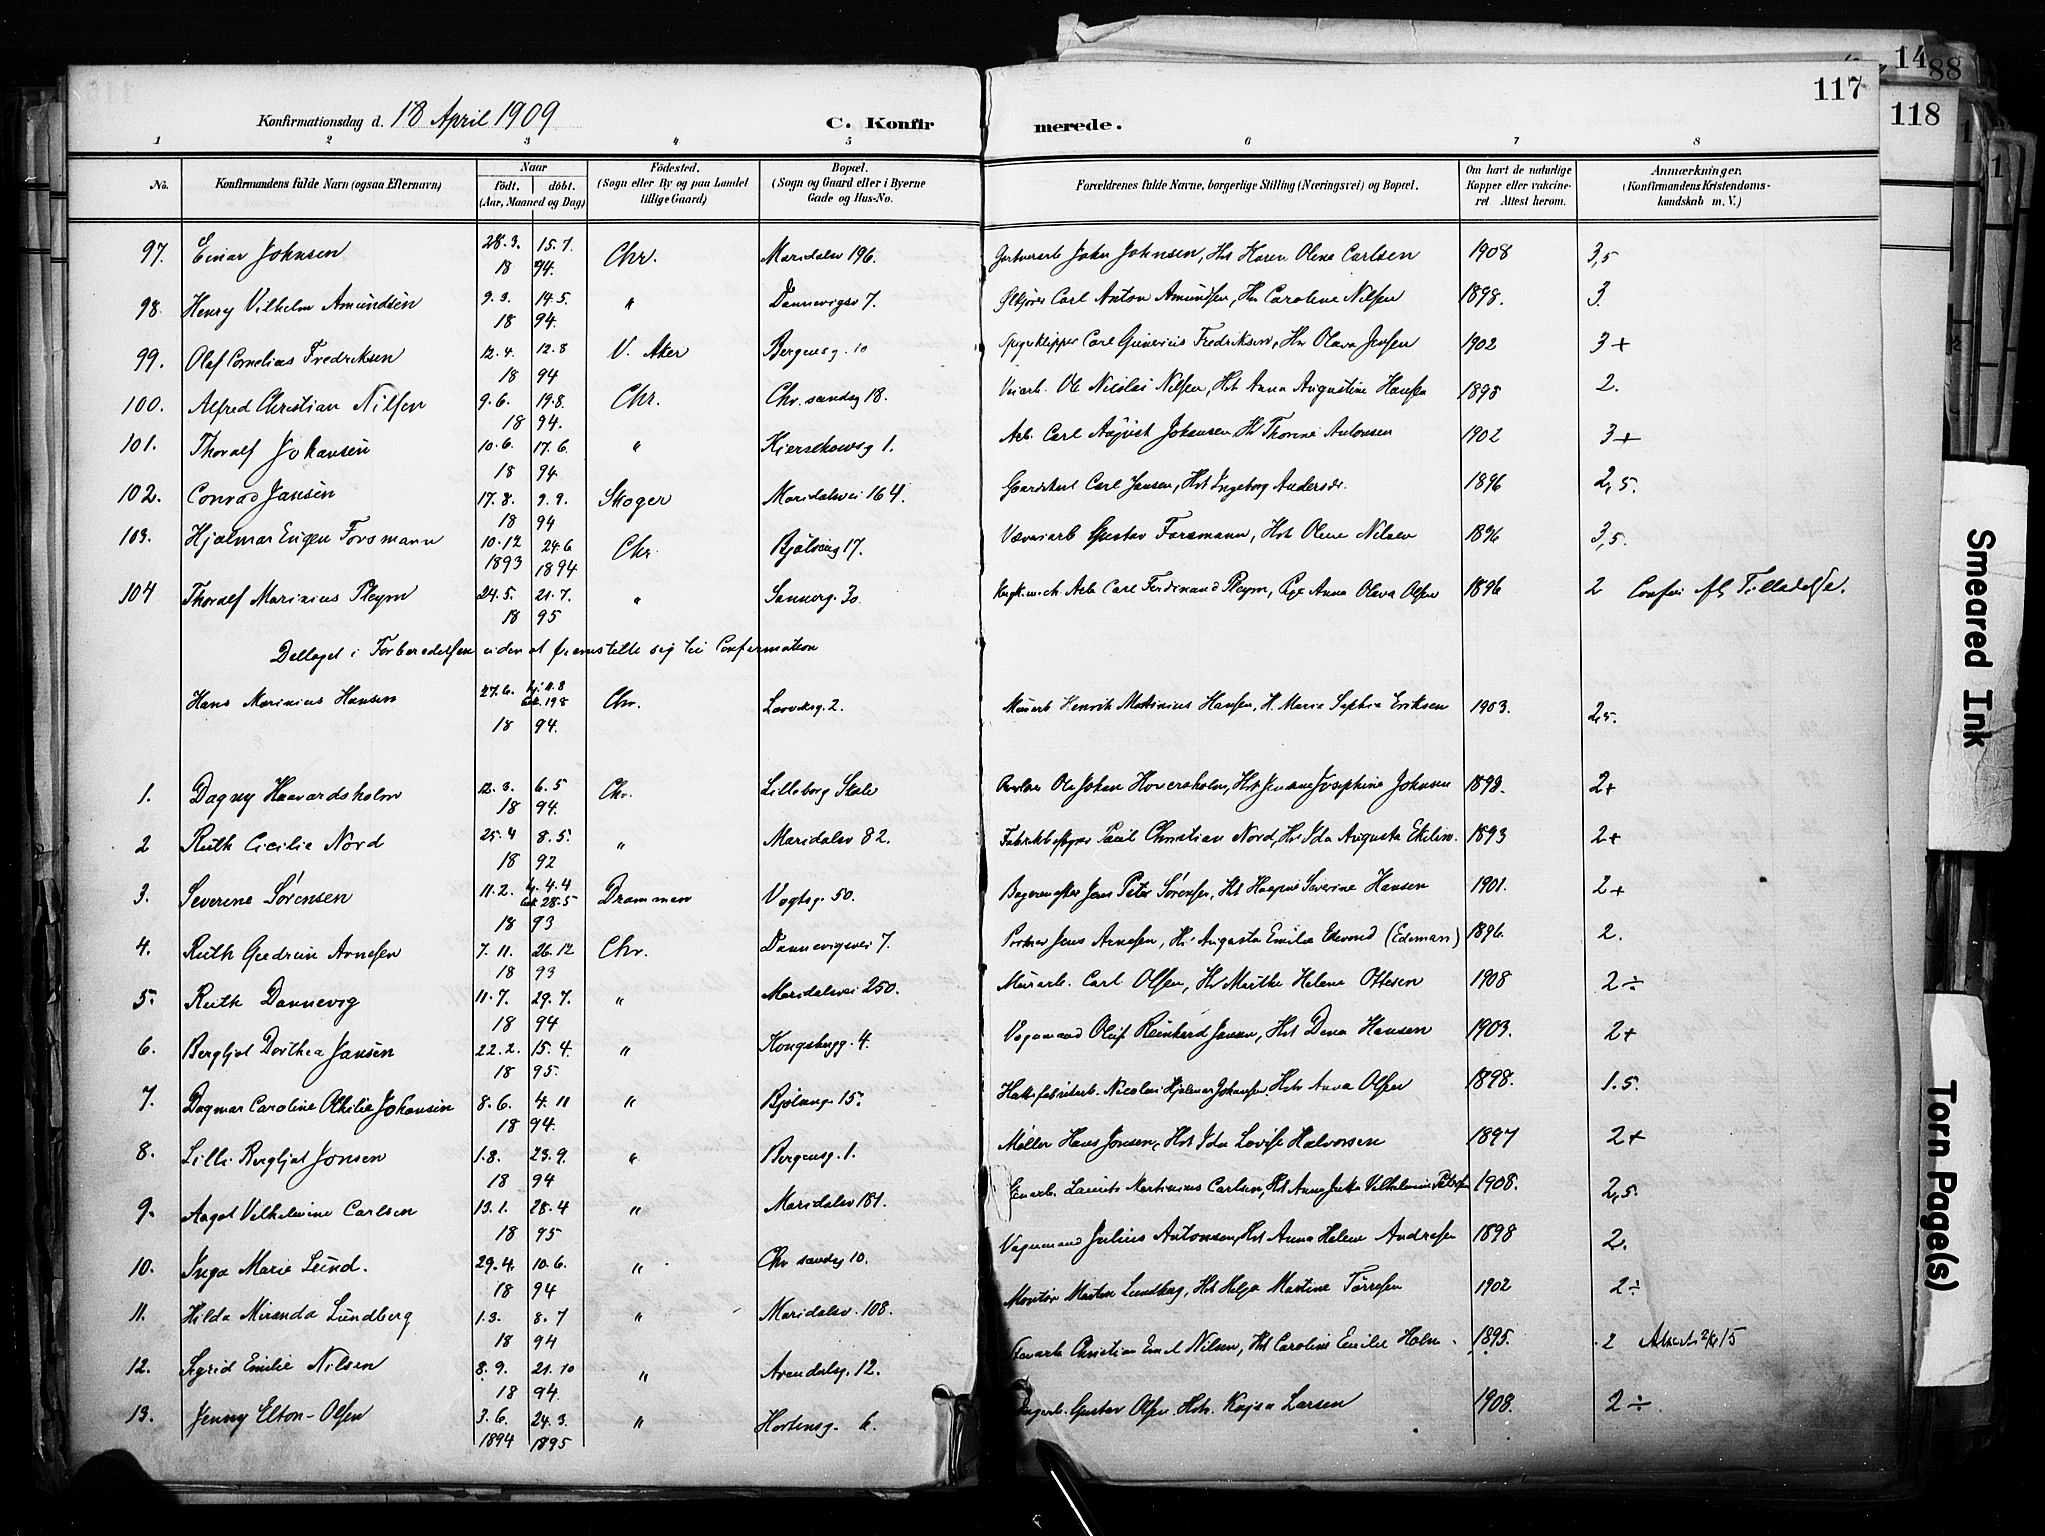 14
88
117
118
1
1
Konfirmationsdag d. 18 April 1909
C. Konfirmerede.
1 2 3 4 5 6 7 8
No. Konfirmandens fulde Navn (ogsaa Efternavn) Naar født. døbt. (Aar, Maaned og Dag) Fødested. (Sogn eller By og paa Landet tillige Gaard) Bopæl. (Sogn og Gaard eller i Byerne Gade og Hus-No. Forældrenes fulde Navne, borgerlige Stilling (Næringsvei) og Bopæl. Om havt de naturlige Kopper eller vakcineret Attest herom. Anmærkninger. (Konfirmandens Kristendomskundskab m. V.)
97. Einar Johnsen 28.3. 15.7. 18 94. Chr. Maridalsv 196. John Johnsen, Hst Karen Olena Carlsen 1908 3,5
98. Henry Vilhelm Amundsen 9.3. 14.5. 18 94. " Dannevigsv 7. Carl Anton Amundsen, Hst Caroline Nilsen 1898. 3.
99. Olaf Cornelius Fredriksen 12.4. 12.8 18 94 V. Aker Bergensg. 10 Carl Gunerius Fredriksen, Hst Olava Jensen 1902 3+
100. Alfred Christian Nilsen 9.6. 19.8. 18 94. Chr. Chr.sandsg 18. Ole Nicolai Nilsen, Hst Anna Augustine Hansen 1898 2.
101. Thoralf Johansen 10.6. 17.6. 18 94. " Kierschowsg 1. Arb. Carl August Johansen Hst Thorine Antonsen 1902 3+
102. Conrad Jansen 17.8. 9.9. 18 94 Skoger Maridalsvei 164. Carl Jansen, Hst Ingeborg Andersdr. 1896 2,5.
103. Hjalmar Eugen Forsmann 10.12 24.6 1893 1894 Chr. Bjølseng 17. Væveriarb Gustav Forsmann, Hst Olene Nilsen 1896 3,5.
104 Thoralf Marinius Pleym 24.5. 21.7. 18 95 " Sannerg. 30. Arb. Carl Ferdinand Pleym, Pige Anna Olava Olsen 1896 2
Deltaget i Forberedelsen uden at fremstille sig til Confirmation
Hans Marinius Hansen 27.6. 18 94. Chr. Larviksg. 2. Murarb Henrik Martinius Hansen, H. Marie Sophie Eriksen 1903. 2,5.
1. Dagny Haavardsholm 12.3. 6.5 18 94. Chr. Lilleborg Skole Ole Johan Haversholm, Hst Josephine Johnsen 1898. 2+
2 Ruth Cicilie Nord 25.4 8.5. 18 92 " Maridalsv 82. Paul Christian Nord, Hst Ida Augusta 1893 2+
3. Severine Sørensen 11.2. 4.4 28.5 18 93 Drammen Vogtsg. 50. Jens Peter Sørensen, Hst Severine Hansen 1901. 2+
4. Ruth Gudrun Arnesen 7.11. 26.12 18 93 Chr. Dannevigsvei 7. Portner Jens Arnesen, Hst Augusta Emilie (Edeman) 1896. 2.
5. Ruth Dannevig 11.7. 29.7. 18 94 " Maridalsvei 250. Murarb. Carl Olsen, Hst Marthe Helene Ottesen 1908 2÷
6. Bergljot Dorthea Jansen 22.2. 15.4. 18 95. " Kongsbergg. 4. Vognmand Oluf Reinhard Jansen, Hst Dina Hansen 1903. 2+
7. Dagmar Caroline Othilie Johansen 8.6. 4.11 18 94. " Bjølseng. 15. Nicolai Hjalmar Johansen. Hst Anna Olsen 1898. 1.5.
8. Lilli Bergljot Jonsen 1.8. 23.9. 18 94 " Bergensg. 1. Møller Hans Jonsen, Hst Ida Lovise Halvorsen 1897 2+
9. Aagot Vilhelmine Carlsen 13.1. 28.4 18 95 " Maridalsv 181. Laurits Martinius Carlsen, Hst Anna Vilhelmine 1908. 2,5.
10. Inga Marie Lund. 29.4. 10.6. 18 94 " Chr sandsg 10. Vognmand Julius Antonsen, Hst Anna Helene Andresen 1898 2.
11. Hilda Miranda Lundberg 1.3. 8.7 18 94 " Maridalsv. 108. Montør Morten Lundberg, Hst Helga Martine Tørresen 1902 2÷
12. Sigrid Emilie Nilsen 8.9. 21.10 18 94. " Arendalsg. 12. Christian Emil Nilsen, Hst Caroline Emilie Holm 1895. 2
13. Jenny Elton-Olsen 3.6. 24.3. 1894 1895 " Hortensg. 6. Gustav Olsen. Hst. Kajsa Larsen 1908. 2÷
Smeared Ink
Torn Page(s)